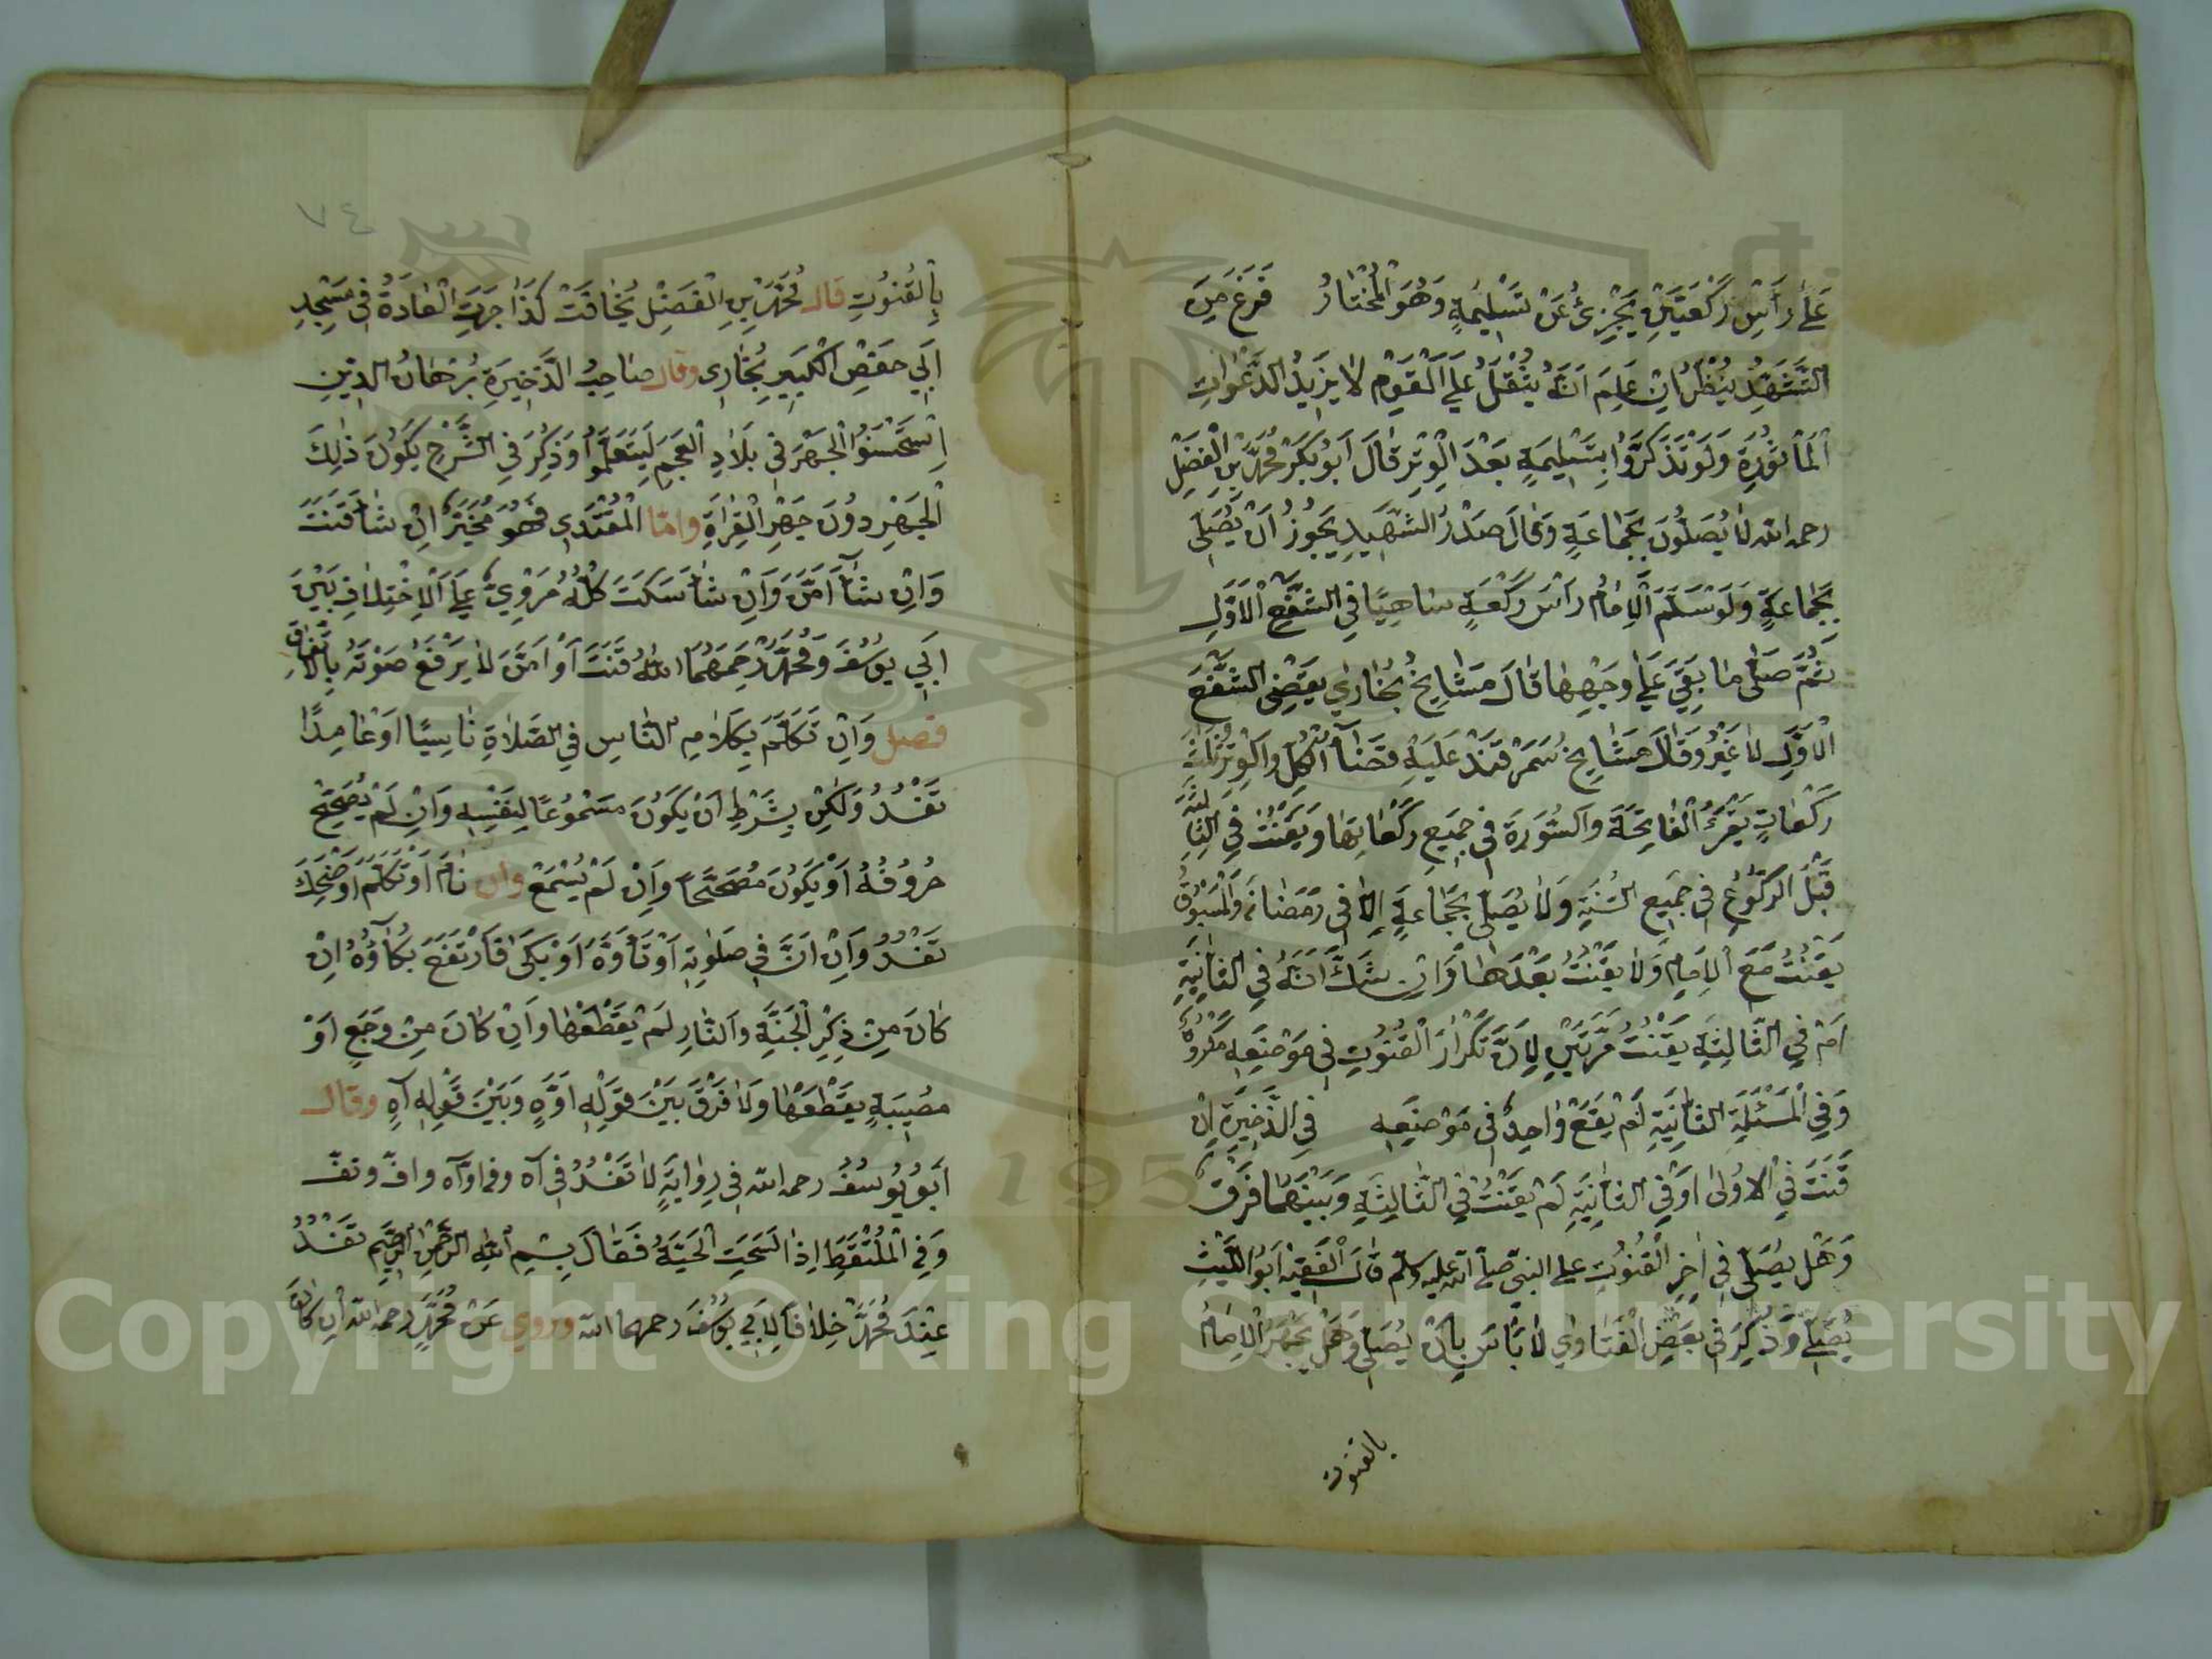 عَلَى رَأْسِ رَكْعَتَيْنِ يَجْزِئُ عَنْ تَسْلِيمَةٍ وَهُوَ الْمُخْتَارُ فَرَغَ مِنَ
التَّشَهُّدِ يَنْظُرُ اِنْ عَلِمَ اَنَّهُ يُثْقَلُ عَلَى الْقَوْمِ لَا يَزِيدُ الدَّعَوَاتِ
الْمَأْثُورَةِ وَلَوْ تَذَكَّرُوا بِتَسْلِيمَةٍ بَعْدَ الْوِتْرِ قَالَ اَبُو بَكْرٍ مُحَمَّدُ بْنُ الْفَضْلِ
رحمه الله لَا يُصَلُّونَ بِجَمَاعَةٍ وَقَالَ صَدْرُ الشَّهِيدِ يَجُوزُ اَنْ يُصَلِّيَ
بِجَمَاعَةٍ وَلَوْ سَلَّمَ الْاِمَامُ رَأْسَ رَكْعَةٍ سَاهِيًا فِي الشَّفْعِ الْاَوَّلِ
ثُمَّ صَلَّى مَا بَقِيَ عَلَى وَجْهِهَا قَالَ مَشَايِخُ بُخَارَى يَقْضِي الشَّفْعَ
الْاَوَّلِ لَا غَيْرُ وَقَالَ مَشَايِخُ سَمَرْقَنْدَ عَلَيْهِ قَضَاءُ الْكُلِّ وَالْوِتْرُ ثَلَاثُ
رَكَعَاتٍ يَقْرَءُ الْفَاتِحَةَ وَالسُّورَةَ فِي جَمِيعِ رَكَعَاتِهَا وَيَقْنُتُ فِي الثَّالِثَةِ
قَبْلَ الرُّكُوعِ فِي جَمِيعِ السَّنَةِ وَلَا يُصَلِّي بِجَمَاعَةٍ اِلَّا فِي رَمَضَانَ وَالْمَسْبُوقُ
يَقْنُتُ مَعَ الْاِمَامِ وَلَا يَقْنُتُ بَعْدَهَا وَاِنْ شَكَّ اَنَّهُ فِي الثَّانِيَةِ
اَمْ فِي الثَّالِثَةِ يَقْنُتُ مَرَّتَيْنِ لِاَنَّ تَكْرَارَ الْقُنُوتِ فِي مَوْضِعِهِ مَكْرُوهٌ
وَفِي الْمَسْئَلَةِ الثَّانِيَةِ لَمْ يَقَعْ وَاحِدٌ فِي مَوْضِعِهِ فِي الذَّخِيرَةِ اِنْ
قَنَتَ فِي الْاُولَى اَوْ فِي الثَّانِيَةِ لَمْ يَقْنُتْ فِي الثَّالِثَةِ وَبَيْنَهُمَا فَرْقٌ
وَهَلْ يُصَلِّي فِي اٰخِرِ الْقُنُوتِ على النبي صلى الله عليه وسلم قَالَ الْفَقِيهُ اَبُو اللَّيْثِ
يُصَلِّي وَذُكِرَ فِي بَعْضِ الْفَتَاوِي لَا بَأْسَ بِاَنْ يُصَلِّيَ وَهَلْ يَجْهَرُ الْاِمَامُ
بالقنوت
٧٤
بِالْقُنُوتِ قال مُحَمَّدُ بْنُ الْفَضْلِ يُخَافَتْ كَذَا جَرَتِ الْعَادَةُ فِي مَسْجِدِ
اَبِي حَفْصِ الْكَبِيرِ بِبُخَارَى وقال صَاحِبُ الذَّخِيرَةِ بُرْهَانُ الدِّينِ
اِسْتَحْسَنُوا الْجَهْرَ فِي بَلَادِ الْعَجَمِ لِيَتَعَلَّمُوا وَذُكِرَ فِي الشَّرْحِ يَكُونُ ذٰلِكَ
الْجَهْرِ دُونَ جَهْرِ الْقِرَاءَةِ وامّا الْمُقْتَدِي فَهُوَ مُخَيَّرٌ اِنْ شَاءَ قَنَتَ
وَاِنْ شَاءَ اَمَّنَ وَاِنْ شَاءَ سَكَتَ كُلُّهُ مَرْوِيٌّ عَلَى الْاِخْتِلَافِ بَيْنَ
اَبِي يُوسُفَ وَمُحَمَّدٍ رَحِمَهُمَا اللهُ قَنَتَ اَوْ اَمَّنَ لَا يَرْفَعُ صَوْتَهُ بِالْاِتِّفَاقِ
فصل وَاِنْ تَكَلَّمَ بِكَلَامِ النَّاسِ فِي الصَّلَاةِ نَاسِيًا اَوْ عَامِدًا
تَفْسُدُ وَلٰكِنْ بِشَرْطِ اَنْ يَكُونَ مَسْمُوعًا لِنَفْسِهِ وَاِنْ لَمْ يُصَحِّحْ
حُرُوفُهُ اَوْ يَكُونَ مُصَحَّحًا وَاِنْ لَمْ يُسْمَعْ وان نَامَ اَوْ تَكَلَّمَ اَوْ ضَحِكَ
تَفْسُدُ وَاِنْ اَنَّ فِي صَلٰوتِهِ اَوْ تَأَوَّهَ اَوْ بَكَى فَارْتَفَعَ بُكَاؤُهُ اِنْ
كَانَ مِنْ ذِكْرِ الْجَنَّةِ وَالنَّارِ لَمْ يَقْطَعْهَا وَاِنْ كَانَ مِنْ وَجَعٍ اَوْ
مُصِيبَةٍ يَقْطَعْهَا وَلَا فَرْقَ بَيْنَ قَوْلِهِ اَوَّهٍ وَبَيْنَ قَوْلِهِ اٰهٍ وقال
اَبُو يُوسُفُ رحمه الله فِي رِوَايَةٍ لَا تَفْسُدُ فِي آه وفي اوآه وافّ وتفّ
وَفِي الْمُلْتَقَطِ اِذَا لَسَعَتِ الْحَيَّةُ فَقَالَ بِسْمِ اللهِ الرَّحْمٰنِ الرَّحِيمِ تَفْسُدُ
عِنْدَ مُحَمَّدٍ خِلَافًا لِاَبِي يُوسُفَ رحمهما الله وروي عَنْ مُحَمَّدٍ رحمه الله اِنْ كَانَ
Copyright © King Saud University
195